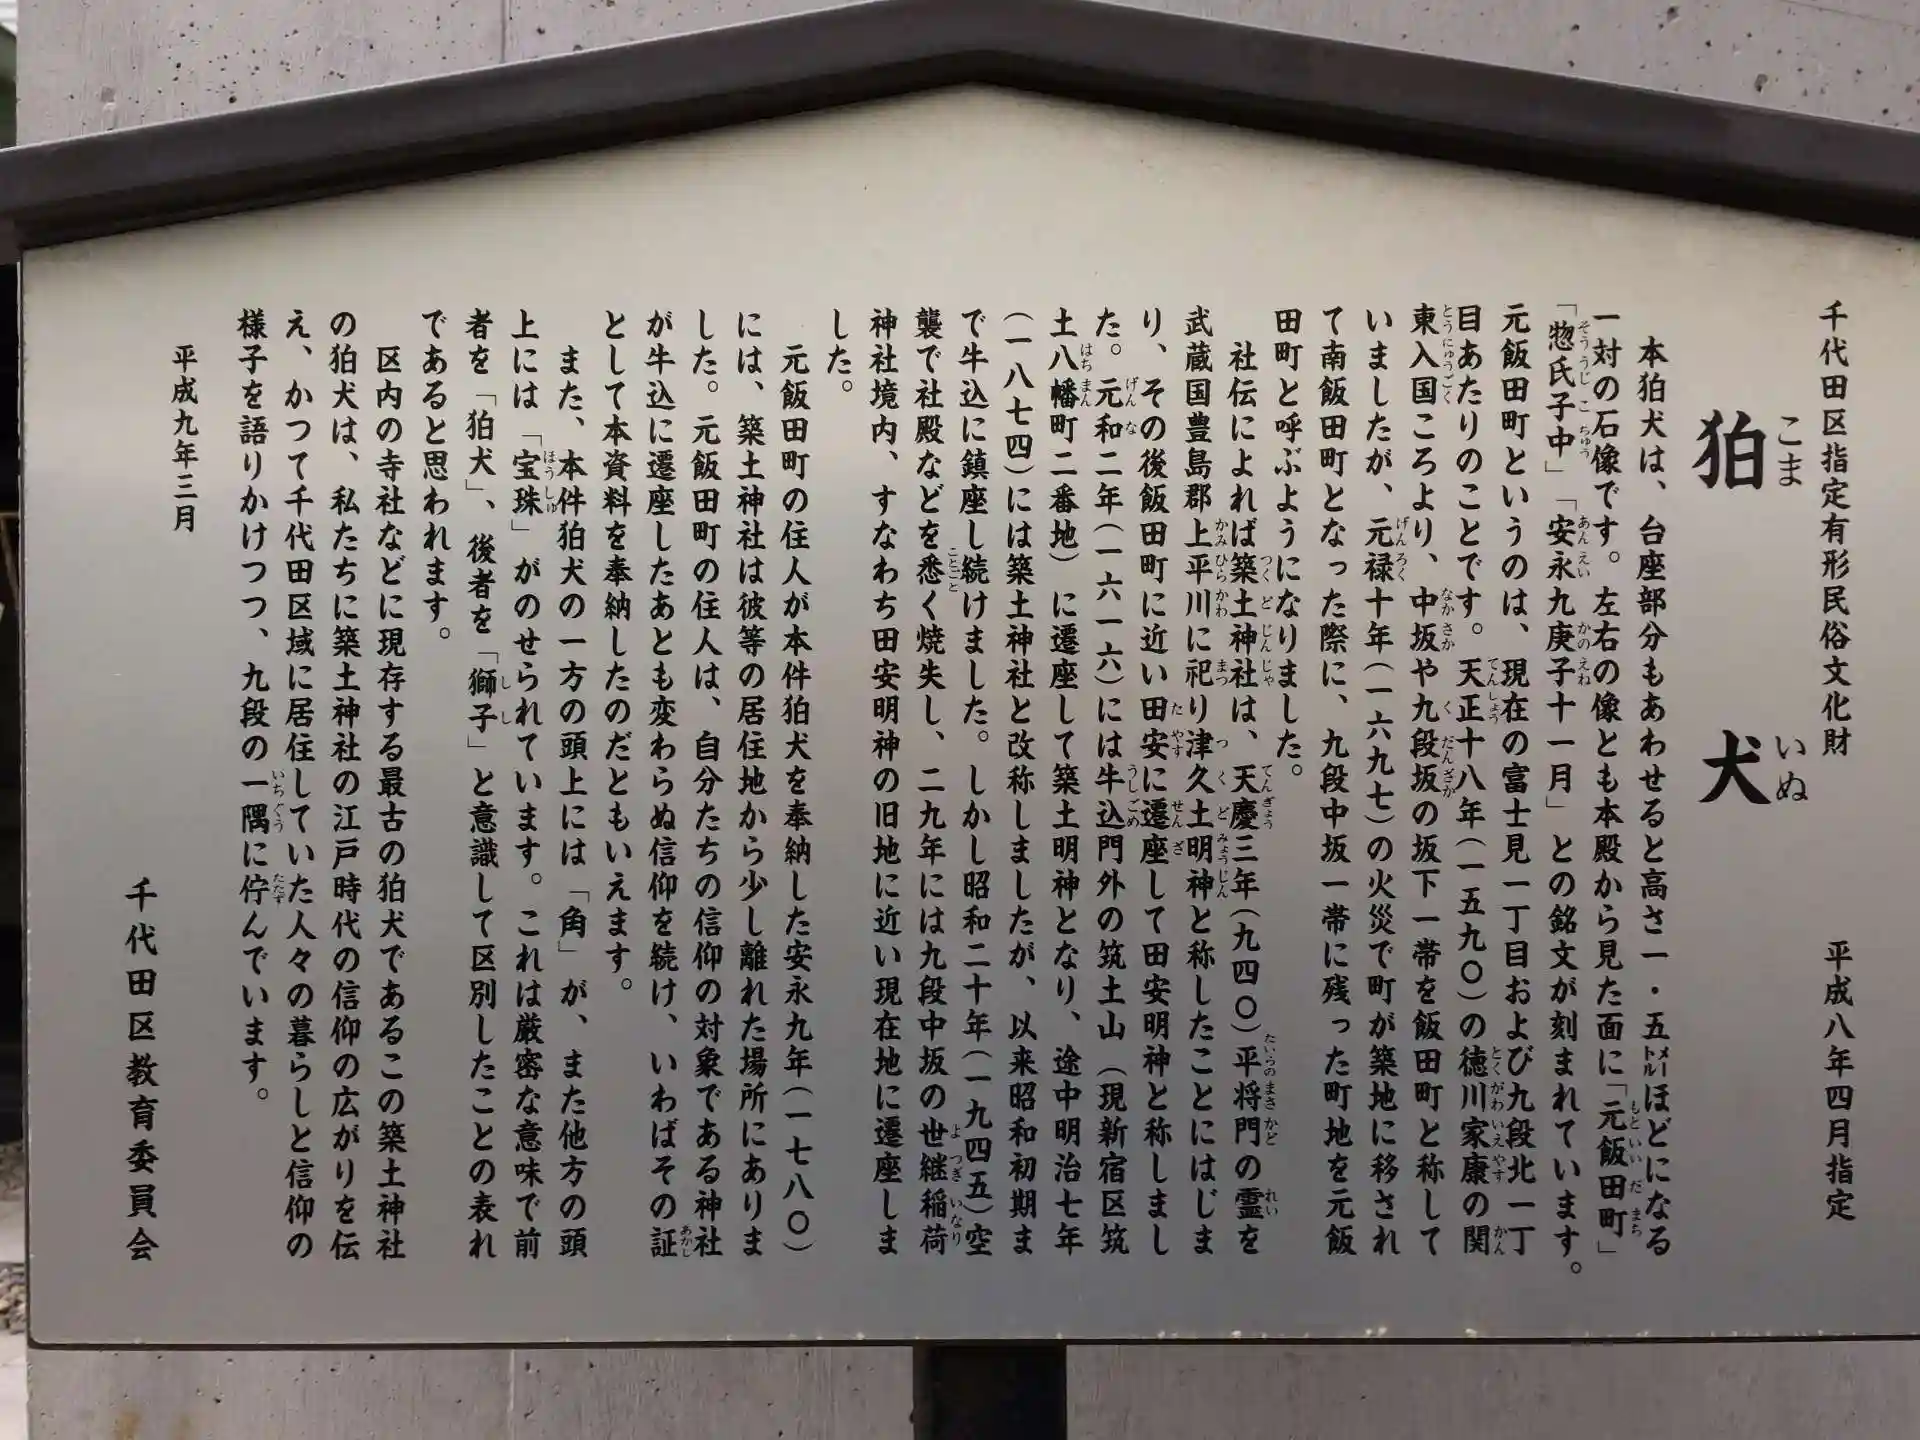 千代田区指定有形民俗文化財　平成八年四月指定
狛犬
こまいぬ
本狛犬は、台座部分もあわせると高さ一・五メートルほどになる
一対の石像です。左右の像とも本殿から見た面に「元飯田町」
「惣氏子中」「安永九庚子十一月」との銘文が刻まれています。
元飯田町というのは、現在の富士見一丁目および九段北一丁
目あたりのことです。天正十八年（一五九〇）の徳川家康の関
東入国ころより、中坂や九段坂の坂下一帯を飯田町と称して
いましたが、元禄十年（一六九七）の火災で町が築地に移され
て南飯田町となった際に、九段中坂一帯に残った町地を元飯
田町と呼ぶようになりました。
社伝によれば築土神社は、天慶三年（九四〇）平将門の霊を
武蔵国豊島郡上平川に祀り津久土明神と称したことにはじま
り、その後飯田町に近い田安に遷座して田安明神と称しまし
た。元和二年（一六一六）には牛込門外の筑土山（現新宿区筑
土八幡町二番地）に遷座して築土明神となり、途中明治七年
（一八七四）には築土神社と改称しましたが、以来昭和初期ま
で牛込に鎮座し続けました。しかし昭和二十年（一九四五）空
襲で社殿などを悉く焼失し、二九年には九段中坂の世継稲荷
神社境内、すなわち田安明神の旧地に近い現在地に遷座しま
した。
元飯田町の住人が本件狛犬を奉納した安永九年（一七八〇）
には、築土神社は彼等の居住地から少し離れた場所にありま
した。元飯田町の住人は、自分たちの信仰の対象である神社
が牛込に遷座したあとも変わらぬ信仰を続け、いわばその証
として本資料を奉納したのだともいえます。
また、本件狛犬の一方の頭上には「角」が、また他方の頭
上には「宝珠」がのせられています。これは厳密な意味で前
者を「狛犬」、後者を「獅子」と意識して区別したことの表れ
であると思われます。
区内の寺社などに現存する最古の狛犬であるこの築土神社
の狛犬は、私たちに築土神社の江戸時代の信仰の広がりを伝
え、かつて千代田区域に居住していた人々の暮らしと信仰の
様子を語りかけつつ、九段の一隅に佇んでいます。
平成九年三月
千代田区教育委員会